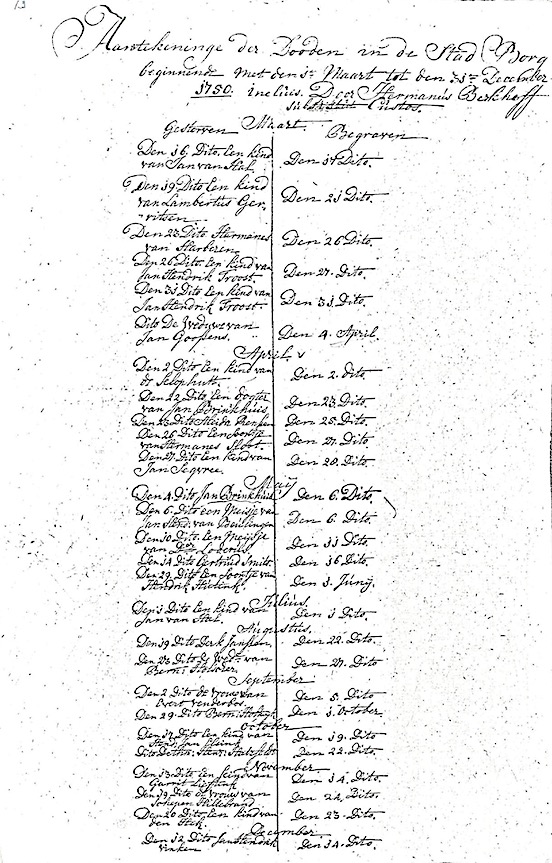 13
Aantekeninge der Dooden in de Stad Borg
beginnende met den 1e Maart tot den 31e December
1750. inclus. Door Hermanus Berkhoff
Custos.
Maart
Gestorven Begraven
Den 16. Dito. Een kind
van Jan van Stal. Den 18 Dito.
Den 19 Dito Een kind
van Lambertus Ger-
ritsen Den 21 Dito.
Den 23 Dito Hermanes
van Harberen Den 26 Dito.
Den 26 Dito. Een kind van
Jan Hendrik Troost. Den 27. Dito
Den 31 Dito Een kind van
Jan Hendrik Troost. Den 31. Dito
Dito De Weduwe van
Jan Goossens. Den 4. April.
April
Den 2 Dito Een kind van
de Den 2. dito.
Den 22. Dito, Een dogter
van Jan Brinkhuis Den 23. Dito.
Den Dito Den 25. Dito.
Den 26 Dito Een Soontje
van Hermanes Sloot Den 27. Dito.
Den 27. Dito Een kind van
Jan Den 28. Dito.
Maij
Den 4. Dito Jan Brinkhuis Den 6. Dito.
Den 6. Dito een Meisje van
Jan Hend. van Den 6. Dito.
Den 10. Dito. Een Meijsje
van Den 11 Dito
Den 14 Dito Gertruid Smits Den 16 Dito.
Den 29. Dito Een Soontje van
Hendrik Den 1. Junij.
Julius.
Den 1 Dito Een kind van
Jan van Stal. Den 1 Dito.
Augustus.
Den 19 Dito Derk Janssen Den 22. Dito.
Den 25 Dito de Wed. van
Bern. Den 27. Dito
September
Den 2 Dito de Vrouw van
Evert Venderbos Den 5. Dito
Den 29. Dito Bern. Den 1. October
October
Den 17 Dito Een kind van
Jan Den 19. Dito
Dito Den 22. Dito.
November
Den 13 Dito Een van
Gerrit Den 14. Dito
Den 19 Dito de Vrouw van
Hillebrand Den 21. Dito.
Den 20 Dito Een kind van
Den 23. Dito.
December
Den 12 Dito Jan Hendrik
Den 14. Dito.